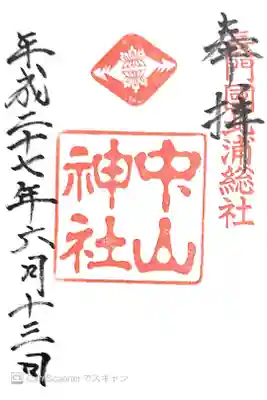 奉拝
長門國浦総社
中山
神社
平成二十七年六月十三日
CS CamScanner でスキャン